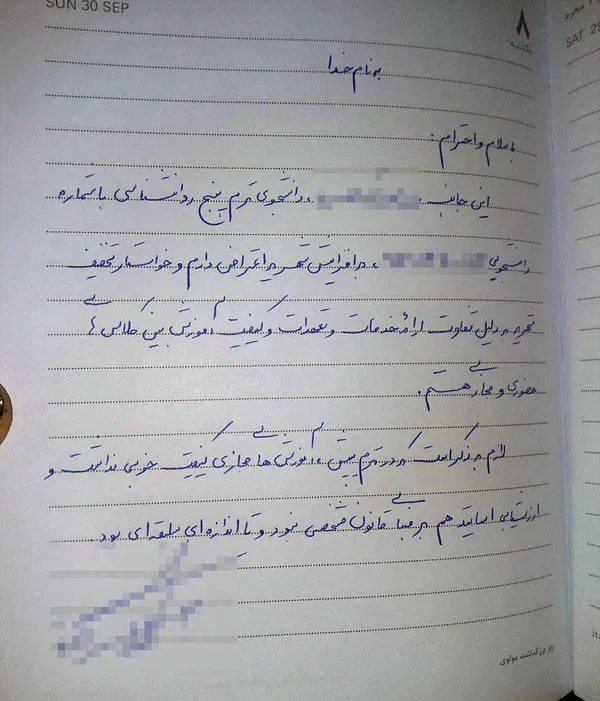 SUN 30 SEP
۸
یکشنبه
محرم
SAT 29
به نام خدا
با سلام و احترام :
این جانب ، دانشجوی ترم پنج روانشناسی با شماره
دانشجویی ، بر افزایش شهریه اعتراض دارم و خواستار تخفیف
شهریه به دلیل تفاوت ارائه خدمات و تعهدات و کیفیت آموزش بین کلاس ها
حضوری و مجازی هستیم.
لازم به ذکر است که در ترم پیش ، آموزش ها مجازی کیفیت خوبی نداشت و
ارزشیابی اساتید هم بر مبنا قانون مشخصی نبود و تا اندازه ای سلیقه ای بود.
روز بزرگداشت مولوی
روز